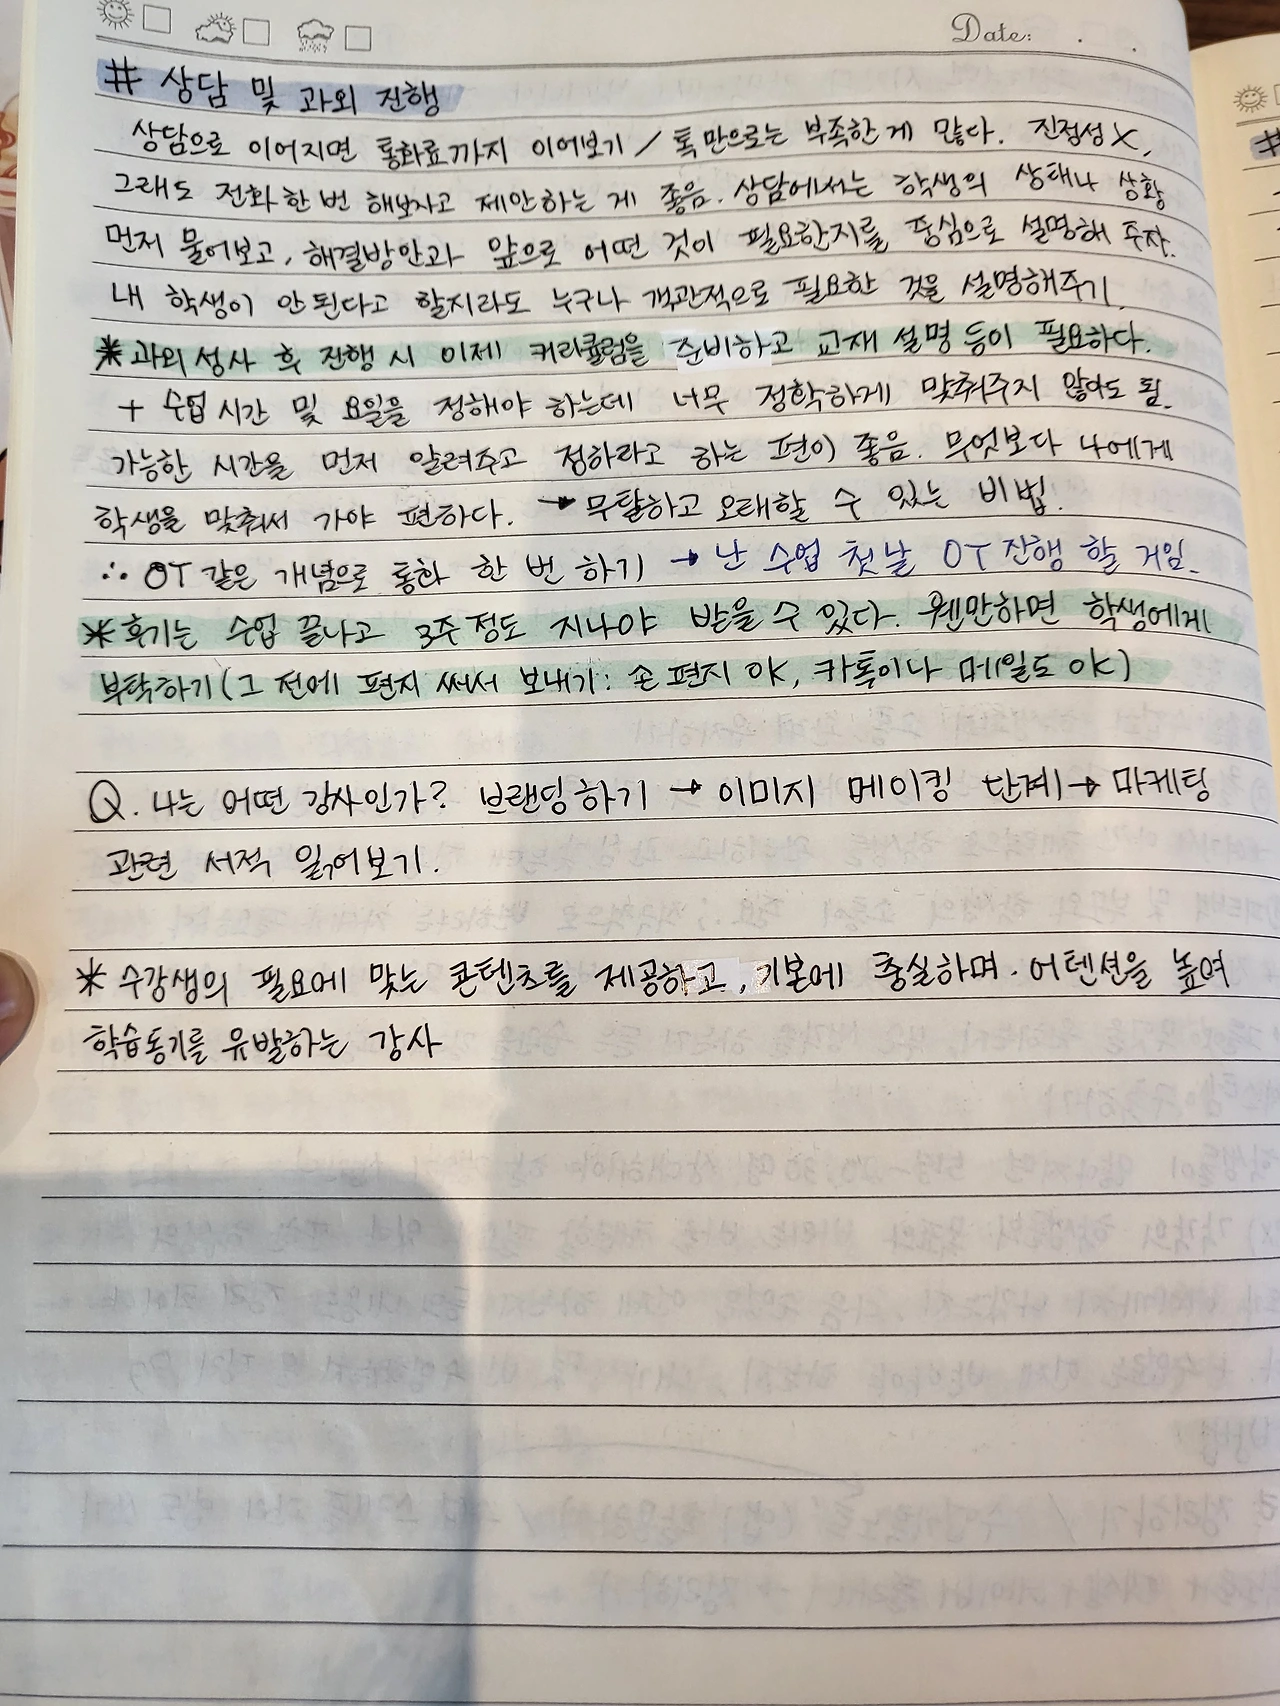 Date: . .
# 상담 및 과외 진행
상담으로 이어지면 통화료까지 이어보기 / 톡만으로는 부족한 게 많다. 진정성 X,
그래도 전화 한 번 해보자고 제안하는 게 좋음. 상담에서는 학생의 상태나 상황
먼저 물어보고, 해결방안과 앞으로 어떤 것이 필요한지를 중심으로 설명해 주자.
내 학생이 안 된다고 할지라도 누구나 객관적으로 필요한 것을 설명해주기.
* 과외 성사 후 진행 시 이제 커리큘럼을 준비하고 교재 설명 등이 필요하다.
+ 수업 시간 및 요일을 정해야 하는데 너무 정확하게 맞춰주지 않아도 됨.
가능한 시간을 먼저 알려주고 정하라고 하는 편이 좋음. 무엇보다 나에게
학생을 맞춰서 가야 편하다. → 무탈하고 오래할 수 있는 비법.
∴ OT 같은 개념으로 통화 한 번 하기 → 난 수업 첫날 OT 진행 할 거임.
* 후기는 수업 끝나고 3주 정도 지나야 받을 수 있다. 웬만하면 학생에게
부탁하기 (그 전에 편지 써서 보내기: 손 편지 OK, 카톡이나 메일도 OK)
Q. 나는 어떤 강사인가? 브랜딩하기 → 이미지 메이킹 단계 → 마케팅
관련 서적 읽어보기.
* 수강생의 필요에 맞는 콘텐츠를 제공하고, 기본에 충실하며. 어텐션을 높여
학습동기를 유발하는 강사